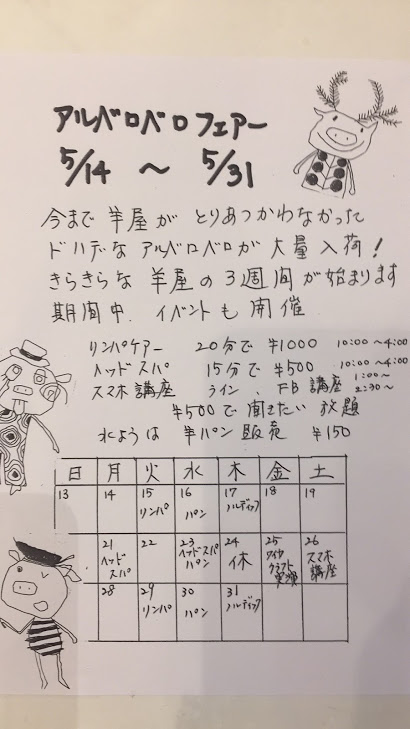 アルベロベロフェアー
5/14 ~ 5/31
今まで羊屋がとりあつかわなかった
ドハデなアルベロベロが大量入荷!
きらきらな羊屋の3週間が始まります
期間中、イベントも開催
リンパケアー 20分で ¥1000 10:00~4:00
ヘッドスパ 15分で ¥500 10:00~4:00
スマホ講座 ライン、FB講座 1:00~ 2:30~
¥500で聞きたい放題
水ようは 羊パン販売 ¥150
日 月 火 水 木 金 土
13 14 15 16 17 18 19
リンパ パン ノルディック
21 22 23 24 25 26
ヘッドスパ ヘッドスパ パン 休 ワイヤクラフト実演 スマホ講座
28 29 30 31
リンパ パン ノルディック